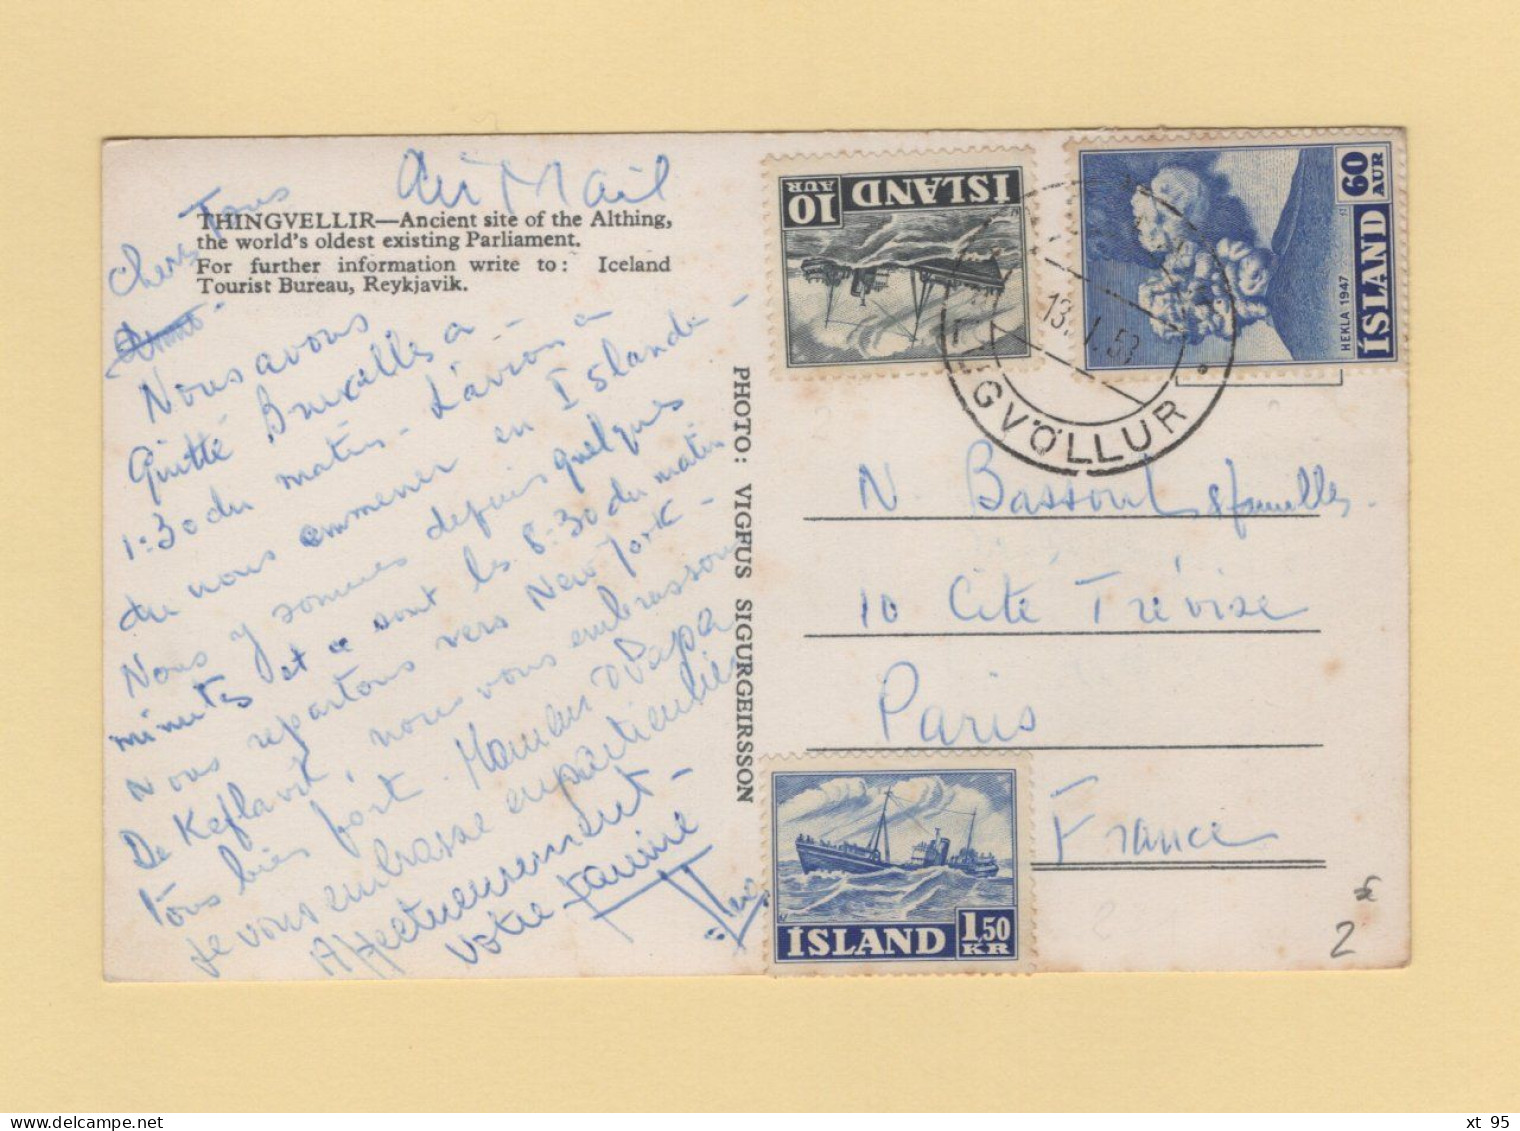 Air Mail
THINGVELLIR—Ancient site of the Althing,
the world's oldest existing Parliament.
For further information write to: Iceland
Tourist Bureau, Reykjavik.
Chers Tous
Nous avons
Quitté Bruxelles a
1:30 du matin - L'avion a
du nous emmener en Islande -
Nous y sommes depuis quelques
minutes et ce sont les 8:30 du matin
Nous repartons vers New York -
De Keflavik, nous vous embrassons
Tous bien fort. Maman Papa
Je vous embrasse en particulier
Affectueusement -
Votre
PHOTO: VIGFUS SIGURGEIRSSON
ÍSLAND
10
AUR
HEKLA 1947
ÍSLAND
60
AUR
13. 1. 53
INGVÖLLUR
N. Bassoul & familles.
10 Cité Trévise
Paris
France
ÍSLAND 1,50
KR
2 €
xt 95